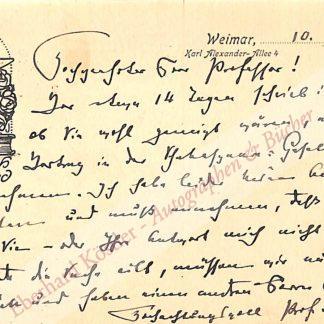 Weimar, 10.
Karl Alexander-Allee 4
Hochgeehrter Herr Professor!
Vor etwa 14 Tagen schrieb i
ob Sie wohl geneigt wären,
Vortrag in der Shakespeare-Gesel
Ich habe leider keine
und muß annehmen, daß
Sie - oder Ihre Antwort mich nicht
die Sache eilt, müssen wir
und haben einen andren Herrn
Hochachtungsvoll Prof.
Eberhard Köstler - Autographen & Bücher